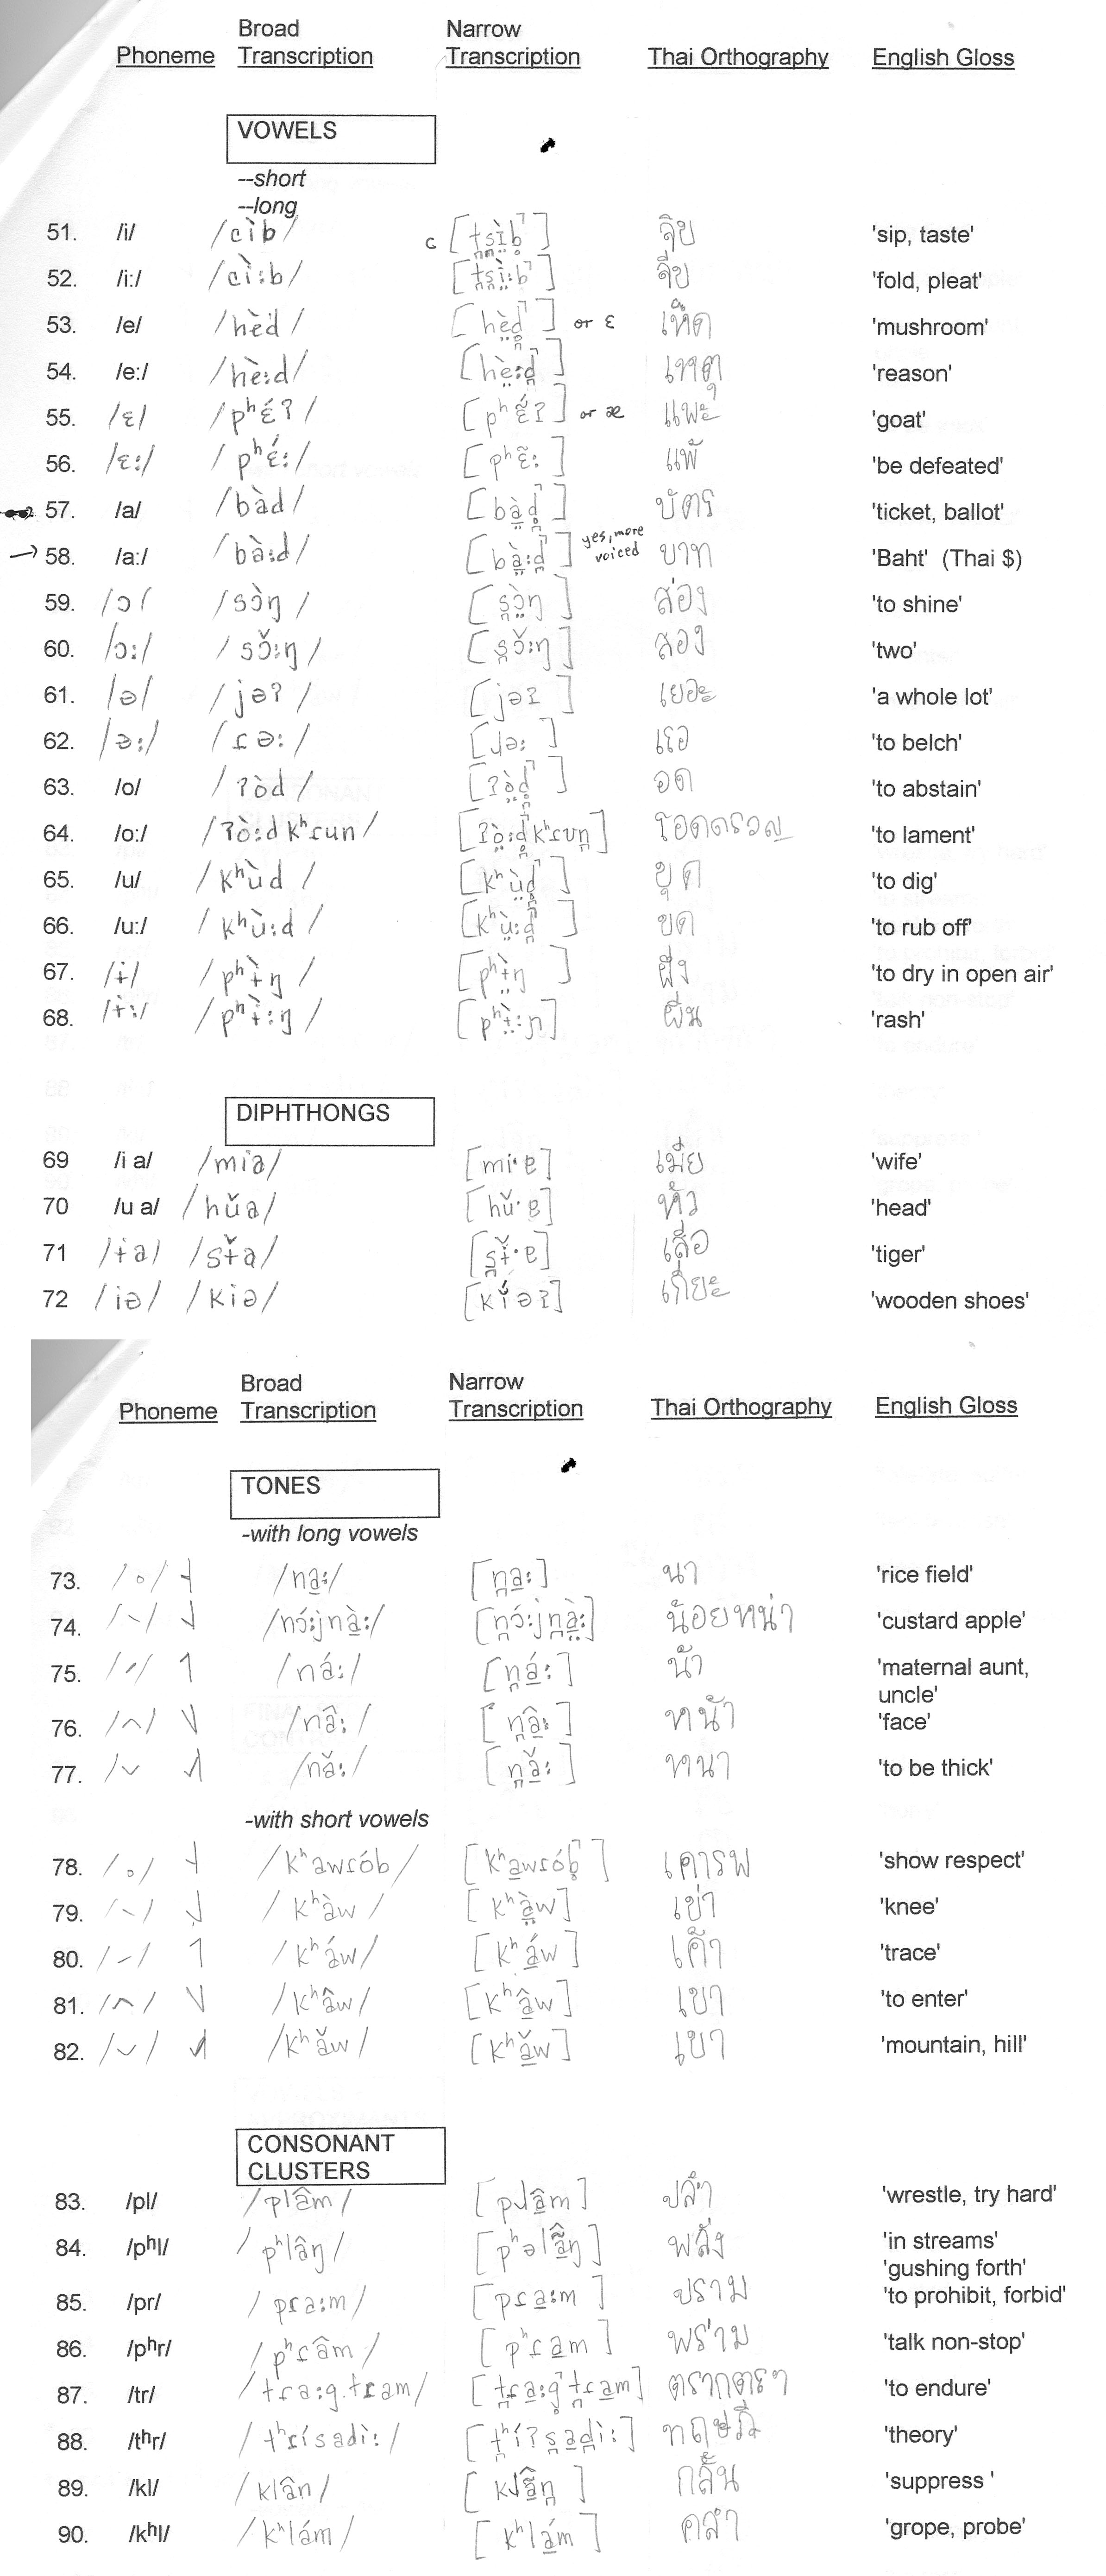 Phoneme Broad Transcription Narrow Transcription Thai Orthography English Gloss
VOWELS
--short
--long
51. /i/ /cìb/ c [t̪s̪ì̤b̥̚] จิบ 'sip, taste'
52. /i:/ /cì:b/ [t̪s̪ì̤:b̚] จีบ 'fold, pleat'
53. /e/ /hèd/ [hè̤d̪̥̚] or ɛ เห็ด 'mushroom'
54. /e:/ /hè:d/ [hè̤:d̪̚] เหตุ 'reason'
55. /ɛ/ /pʰɛ́ʔ/ [pʰɛ̰́ʔ] or æ แพะ 'goat'
56. /ɛ:/ /pʰɛ́:/ [pʰɛ̃:] แพ้ 'be defeated'
57. /a/ /bàd/ [bà̤d̪̥̚] บัตร 'ticket, ballot'
58. /a:/ /bà:d/ [bà̤:d̪̚] yes, more voiced บาท 'Baht' (Thai $)
59. /ɔ/ /sɔ̀ŋ/ [s̪ɔ̤̀ŋ] ส่อง 'to shine'
60. /ɔ:/ /sɔ̌:ŋ/ [s̪ɔ̌:ŋ] สอง 'two'
61. /ə/ /jəʔ/ [jəʔ] เยอะ 'a whole lot'
62. /ə:/ /ɾə:/ [ɺə:] เรอ 'to belch'
63. /o/ /ʔòd/ [ʔò̤d̪̥̚] อด 'to abstain'
64. /o:/ /ʔò:d kʰɾun/ [ʔò̤:d̪̥kʰɾun̪] โอดครวญ 'to lament'
65. /u/ /kʰùd/ [kʰṳ̀d̪̥̚] ขุด 'to dig'
66. /u:/ /kʰù:d/ [kʰṳ̀:d̪̚] ขูด 'to rub off'
67. /ɨ/ /pʰɨ̀ŋ/ [pʰɨ̤̀ŋ] ผึ่ง 'to dry in open air'
68. /ɨ̀:/ /pʰɨ̀:ŋ/ [pʰɨ̤̀:ɲ] ผื่น 'rash'
DIPHTHONGS
69 /i a/ /mia/ [mi·ɐ] เมีย 'wife'
70 /u a/ /hǔa/ [hǔ·ɐ] หัว 'head'
71 /ɨa/ /sɨ̌a/ [s̪ɨ̌·ɐ] เสือ 'tiger'
72 /iə/ /kiə/ [kíəʔ] เกี๊ยะ 'wooden shoes'
Phoneme Broad Transcription Narrow Transcription Thai Orthography English Gloss
TONES
-with long vowels
73. / ˳ / ˧ /na̱:/ [n̪a̱:] นา 'rice field'
74. /ˋ/ /nɔ́:jnà̱:/ [n̪ɔ́:jn̪à̤:] น้อยหน่า 'custard apple'
75. /ˊ/ /ná:/ [n̪á̱:] น้า 'maternal aunt, uncle'
76. /^/ /nâ:/ [n̪â̱:] หน้า 'face'
77. /ˇ /nǎ:/ [n̪ǎ̱:] หนา 'to be thick'
-with short vowels
78. / ˳ / ˧ /kʰawɾób/ [kʰa̱wɾób̥̚] เคารพ 'show respect'
79. /ˋ/ /kʰàw/ [kʰà̤w] เข่า 'knee'
80. /ˊ/ /kʰáw/ [kʰá̱w] เค้า 'trace'
81. /^/ /kʰâw/ [kʰâ̱w] เขา 'to enter'
82. /ˇ/ /kʰǎw/ [kʰǎ̱w] เขา 'mountain, hill'
CONSONANT CLUSTERS
83. /pl/ /plâm/ [pɺâ̱m] ปล้ำ 'wrestle, try hard'
84. /pʰl/ /pʰlâŋ/ [pʰəlâ̱ŋ] พลั่ง 'in streams' 'gushing forth'
85. /pr/ /pɾa:m/ [pɾa̱:m] ปราม 'to prohibit, forbid'
86. /pʰr/ /pʰɾâm/ [pʰɾa̱m] พร่าม 'talk non-stop'
87. /tr/ /tɾa:g.tɾam/ [t̪ɾa̱:g̚t̪ɾa̱m] ตรากตรำ 'to endure'
88. /tʰr/ /tʰɾísadì:/ [t̪ʰíʔs̪a̱d̪ì:] ทฤษฎี 'theory'
89. /kl/ /klân/ [kɺâ̱n̪] กลั้น 'suppress '
90. /kʰl/ /kʰlám/ [kʰlá̱m] คลำ 'grope, probe'